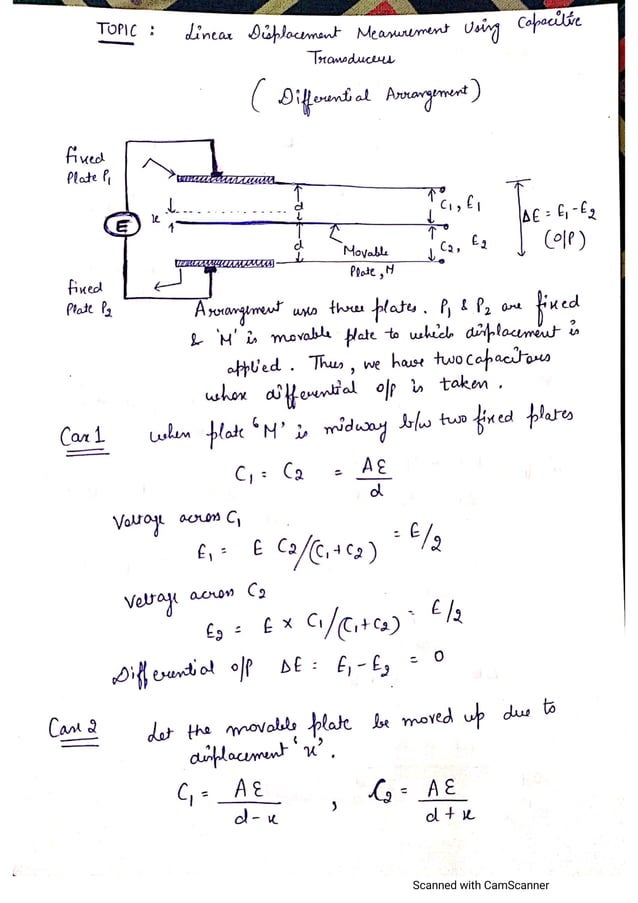 TOPIC : Linear Displacement Measurement Using Capacitive
Transducers
( Differential Arrangement )
fixed
Plate P1
E
x
d
d
C1, E1
C2, E2
ΔE = E1-E2
(O/P)
Movable
Plate, M
fixed
Plate P2
Arrangement uses three plates. P1 & P2 are fixed
& 'M' is movable plate to which displacement is
applied. Thus, we have two capacitors
whose differential o/p is taken.
Case 1 when plate 'M' is midway b/w two fixed plates
C1 = C2 = Aε/d
Voltage across C1
E1 = E C2/(C1+C2) = E/2
Voltage across C2
E2 = E x C1/(C1+C2) = E/2
Differential o/p ΔE = E1-E2 = 0
Case 2 Let the movable plate be moved up due to
displacement 'x'.
C1 = Aε/d-x , C2 = Aε/d+x
Scanned with CamScanner